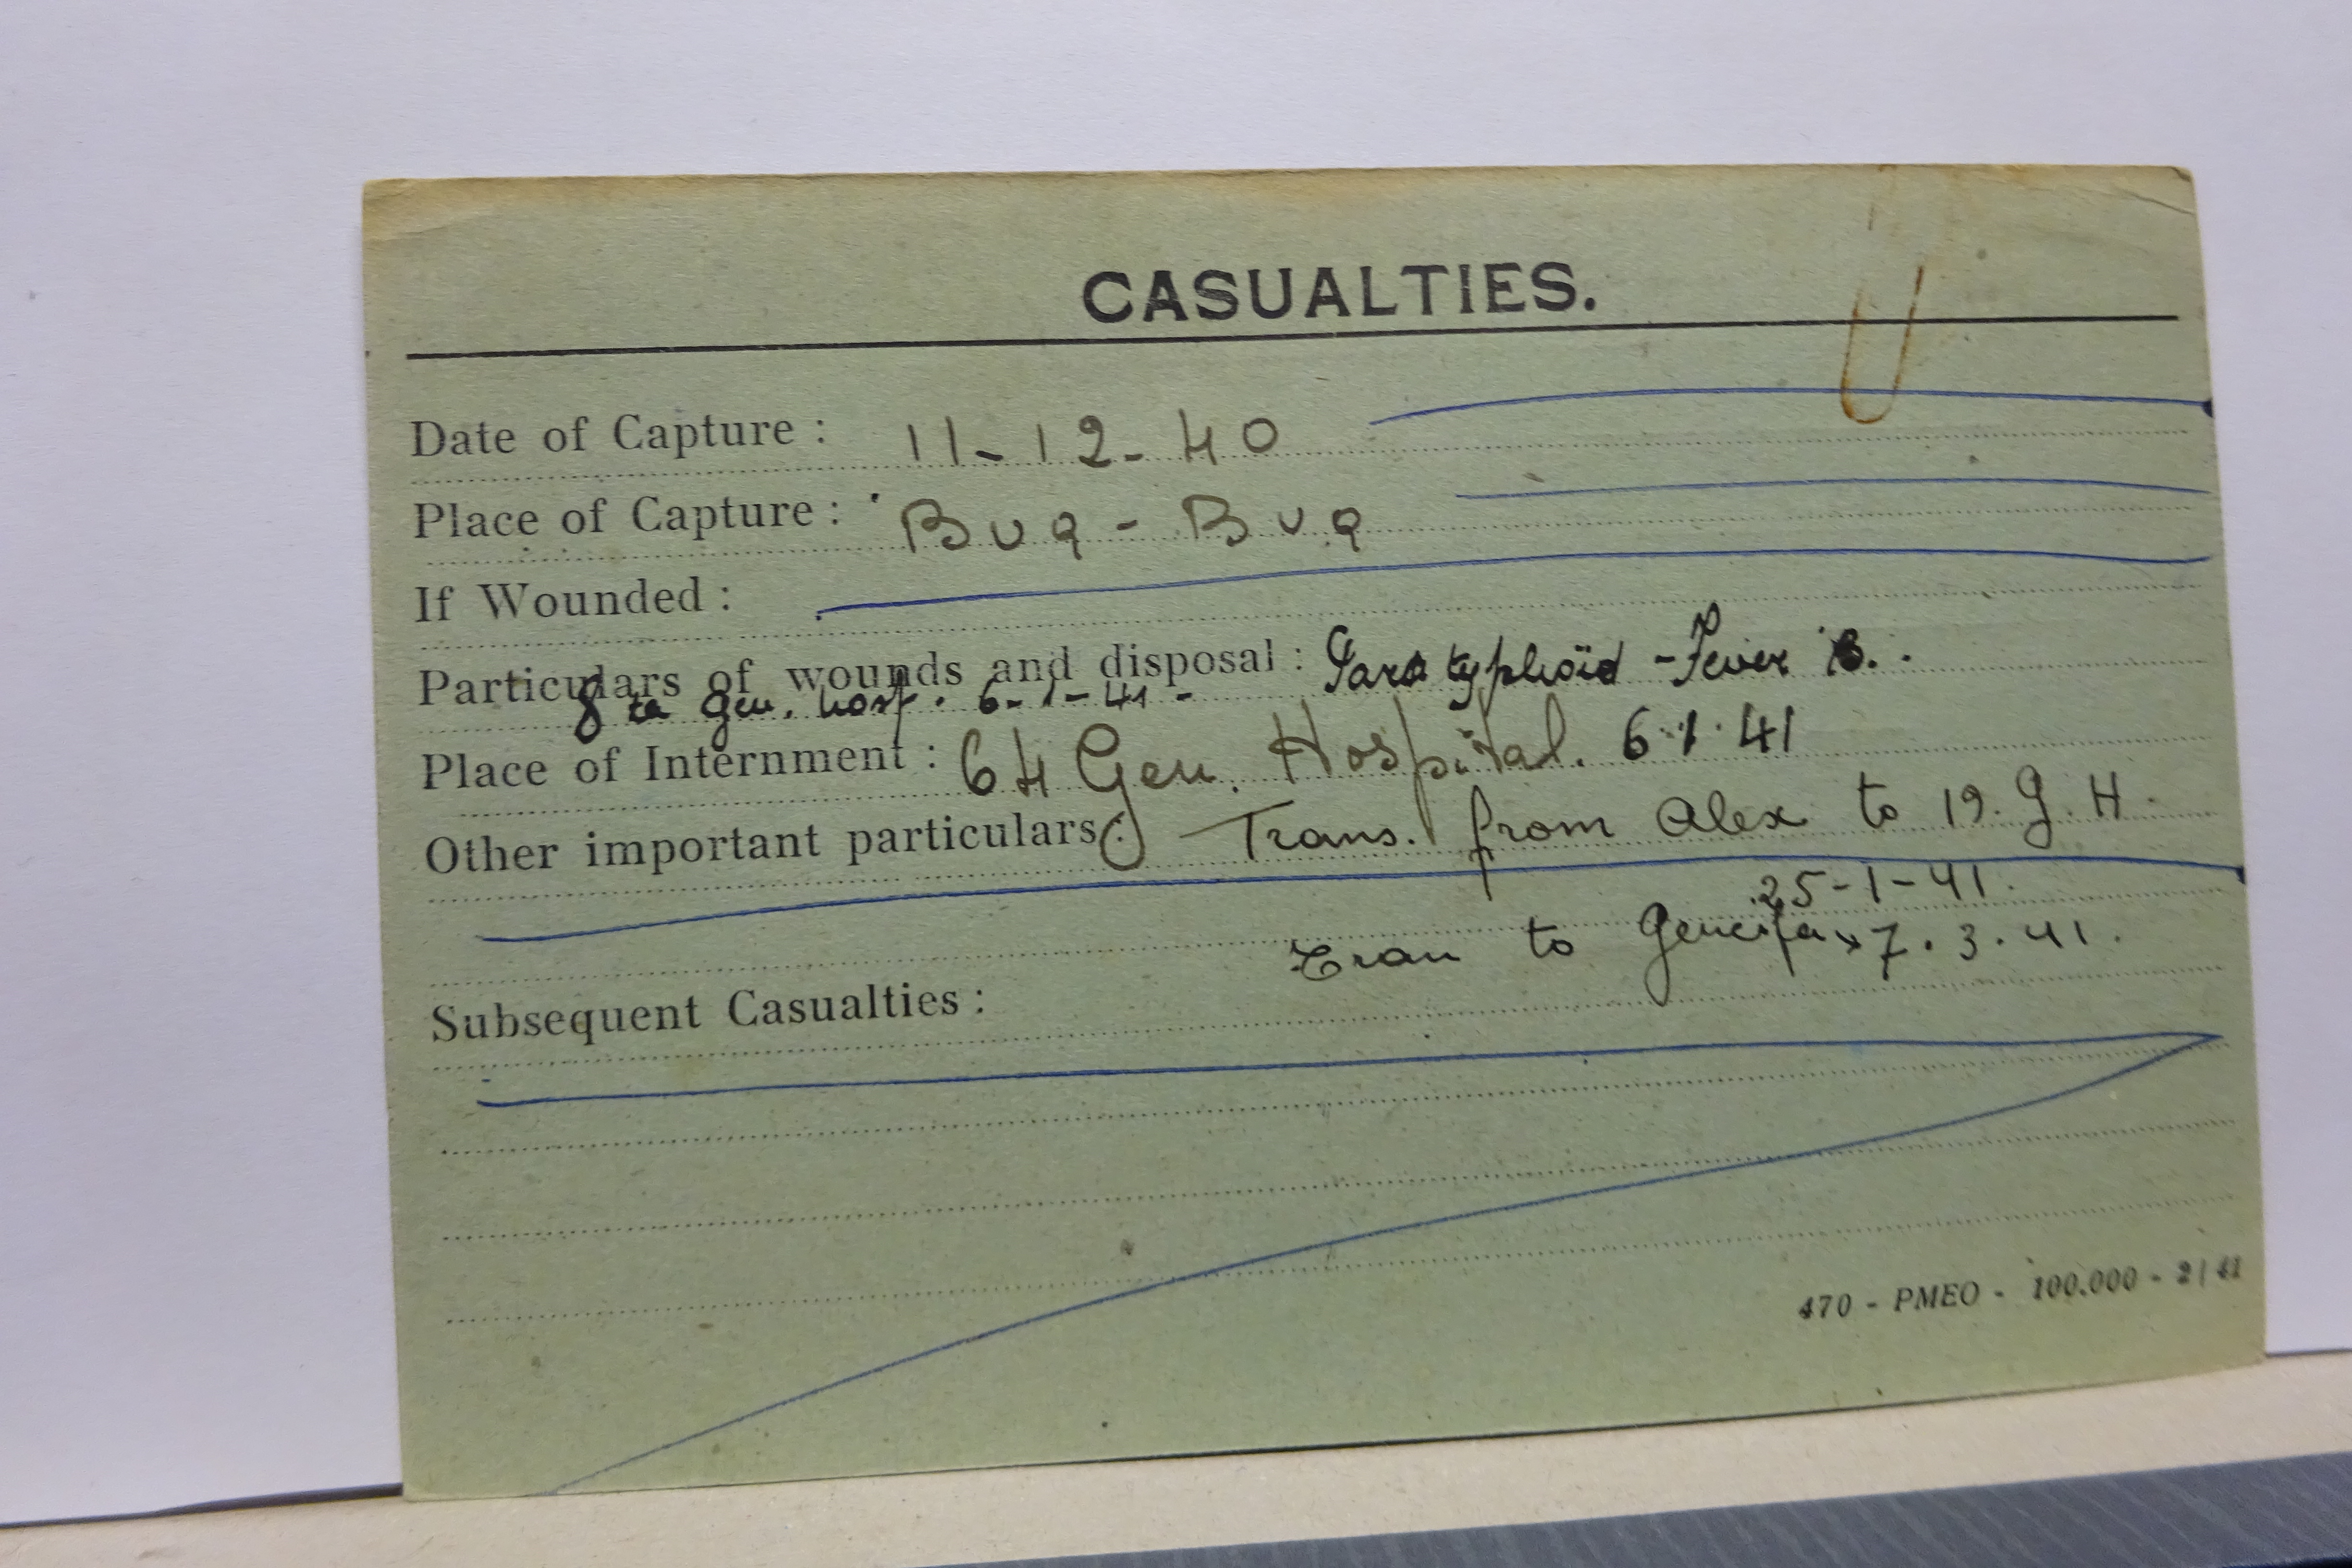 CASUALTIES.
Date of Capture : 11-12-40
Place of Capture : Buq-Buq
If Wounded :
Particulars of wounds and disposal : Paratyphoïd - Fever B.
8 to Gen. hosp. 6-1-41 -
Place of Internment : 64 Gen. Hospital. 6.1.41
Other important particulars : Trans. from Alex to 19. G. H.
25-1-41.
Tran to Geneifa 7.3.41.
Subsequent Casualties :
470 - PMEO - 100.000 - 2/41